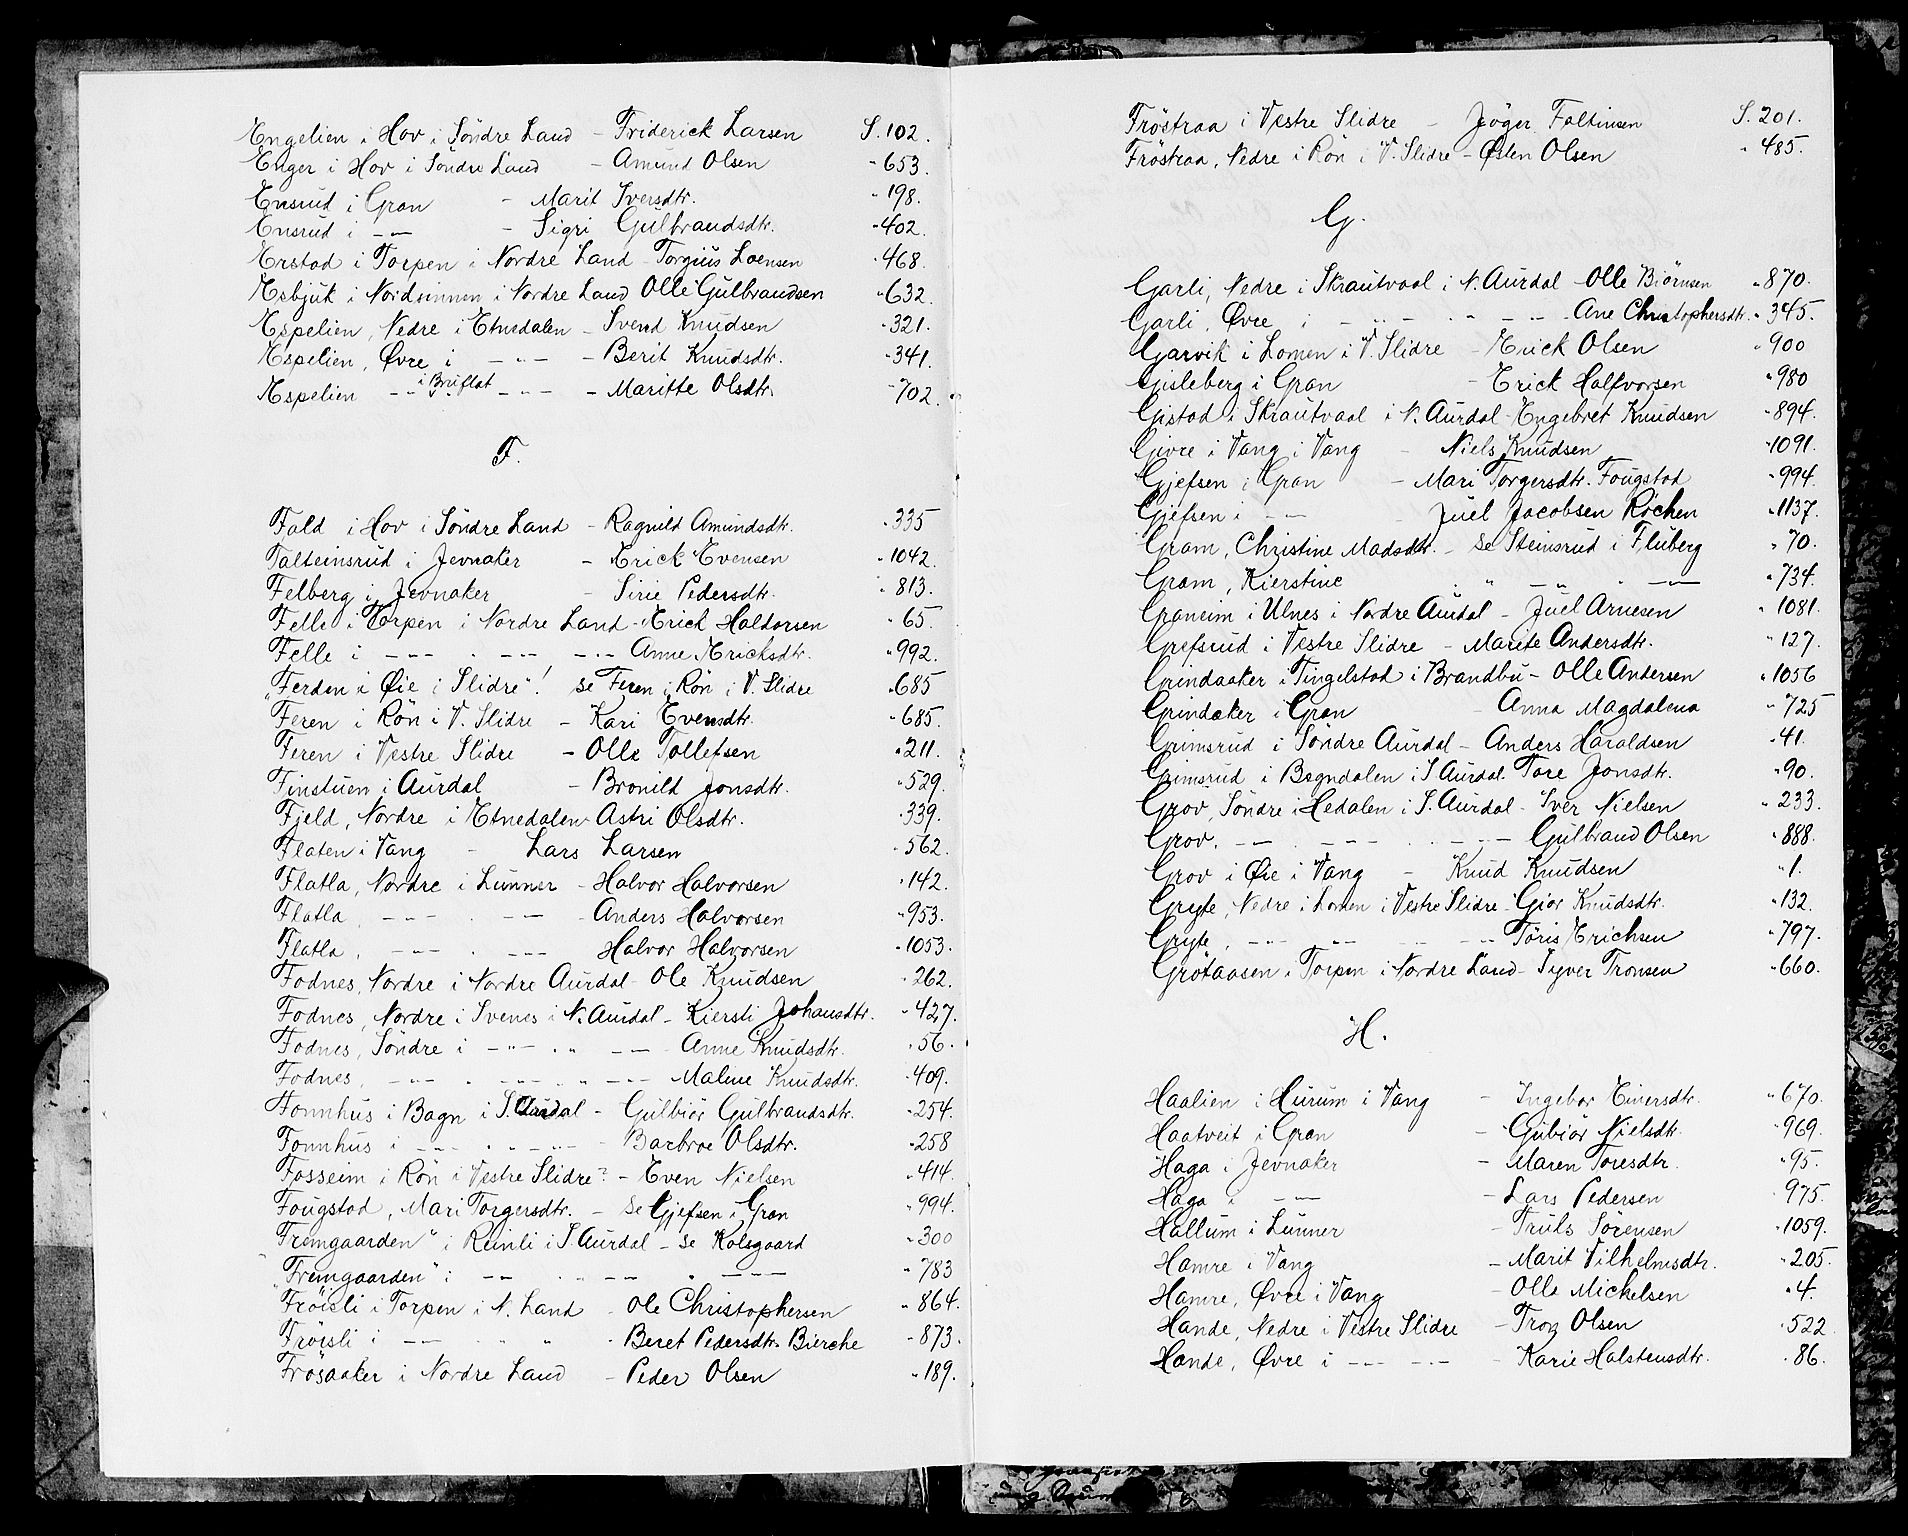 Engelien i Hov i Söndre Land - Friderick Larsen S. 102.
Enger i Hov i Söndre Land - Amund Olsen - 653.
Ensrud i Gran - Marit Iversdtr. - 198.
Ensrud i - - - Sigri Gulbrandsdtr. - 402.
Erstad i Torpen i Nordre Land - Torgius Loensen - 468.
Esbjuk i Nordsinnen i Nordre Land Olle Gulbrandsen - 632.
Espelien, Nedre i Etnedalen - Svend Knudsen - 321.
Espelien, Øvre i - " - - Berit Knudsdtr. - 341.
Espelien - - i Bruflat - " - - Maritte Olsdtr. - 702.
F.
Fald i Hov i Söndre Land - Ragnild Amundsdtr. - 335
Falteinsrud i Jevnaker - Erick Evensen - 1042.
Felberg i Jevnaker - Sirie Pedersdtr. - 813.
Felle i Torpen i Nordre Land - Erick Haldorsen - 65.
Felle i - - - - - - - - - Anne Ericksdtr. - 992.
"Ferden i Øie i Slidre"! se Feren i Røn i V. Slidre - 685
Feren i Røn i V. Slidre - Kari Evensdtr. - 685.
Feren i Vestre Slidre - Olle Tollefsen - 211.
Finstuen i Aurdal - Bronild Jonsdtr. - 529.
Fjeld, Nordre i Etnedalen - Astri Olsdtr. - 339.
Flaten i Vang - Lars Larsen - 562.
Flatla, Nordre i Lunner - Halvor Halvorsen - 142.
Flatla, - - - . - - - Anders Halvorsen - 953.
Flatla, - - - . - - - Halvor Halvorsen - 1053.
Fodnes, Nordre i Nordre Aurdal - Ole Knudsen - 262.
Fodnes, Nordre i Svenes i N. Aurdal - Kiersti Johansdtr. - 427.
Fodnes, Söndre i - " - . " - - Anne Knudsdtr. - 56.
Fodnes, - " - . - " - . " - - - Malene Knudsdtr. - 409.
Fonnhus i Bagn i S. Aurdal - Gulbiör Gulbrandsdtr. - 254.
Fonnhus i - - - . . - " - - Barbroe Olsdtr. - 258
Fosseim i Røn i Vestre Slidre? - Even Nielsen - 414.
Fougstad, Mari Torgersdtr. - se Gjefsen i Gran - 994.
"Fremgaarden" i Reinli i S. Aurdal - se Kolsgaard - 300
"Fremgaarden" i - - . " - - . - - - - 783
Fröisli i Torpen i N. Land - Ole Christophersen - 864.
Fröisli i - - . " " . Beret Pedersdtr. Bierche - 873.
Frösaaker i Nordre Land - Peder Olsen - 189.
Fröstraa i Vestre Slidre - Jöger Faltinsen S. 201.
Fröstraa, Nedre i Røn i V. Slidre - Østen Olsen - 485.
G.
Garli, Nedre i Skrautvaal i N. Aurdal - Olle Biörnsen - 870.
Garli, Øvre i - - - . " . - - - Ane Christophersdtr. - 345.
Garvik i Lomen i V. Slidre - Erick Olsen - 900
Gisleberg i Gran - Erick Halfvorsen - 980
Gistad i Skrautvaal i N. Aurdal - Engebret Knudsen - 894.
Givre i Vang i Vang - Niels Knudsen - 1091.
Gjefsen i Gran - Mari Torgersdtr. Fougstad - 994.
Gjefsen i - - - Juel Jacobsen Röchen - 1137.
Gram, Christine Madsdtr. - se Steinsrud i Fluberg - 70.
Gram, Kierstine - " - " - . - " - - 734.
Graneim i Ulnes i Nordre Aurdal - Juel Arnesen - 1081.
Grefsrud i Vestre Slidre - Marite Andersdtr. - 127.
Grindaaker i Tingelstad i Brandbu - Olle Andersen - 1056
Grindaker i Gran - Anna Magdalena - 725
Grimsrud i Söndre Aurdal - Anders Haraldsen - 41.
Grimsrud i Begndalen i S. Aurdal. Tore Jonsdtr. - 90.
Grov, Söndre i Hedalen i S. Aurdal - Iver Nielsen - 233.
Grov. - - - . - - - . . - - - Gulbrand Olsen - 888.
Grov i Øie i Vang - Knud Knudsen - 1.
Gryte, Nedre i Lomen i Vestre Slidre - Giör Knudsdtr. - 132.
Gryte, - - - - - . . - - Töris Erichsen - 797.
Grötaasen i Torpen i Nordre Land - Syver Tronsen - 660.
H.
Haalien i Hurum i Vang - Ingebor Einersdtr. - 670.
Haatveit i Gran - Gubiör Nielsdtr. - 969.
Haga i Jevnaker - Maren Toresdtr. - 95.
Haga i - - - Lars Pedersen - 975.
Hallum i Lunner - Truls Sörensen - 1059.
Hamre i Vang - Marit Vilhelmsdtr. - 205.
Hamre, Øvre i Vang - Olle Mickelsen - 4.
Hande, Nedre i Vestre Slidre - Tron Olsen - 522
Hande, Øvre i - - - - - - - Karie Halstensdtr. - 86.